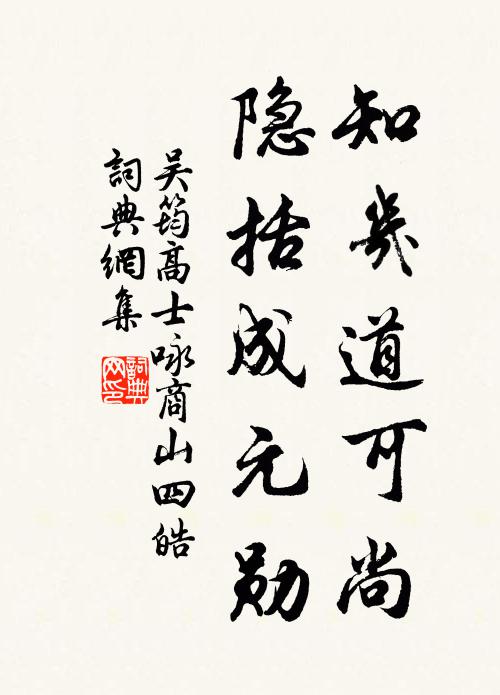 知幾道可尚
隐括成元勋
吴筠高士咏商山四皓
詞典網集
詞典網印